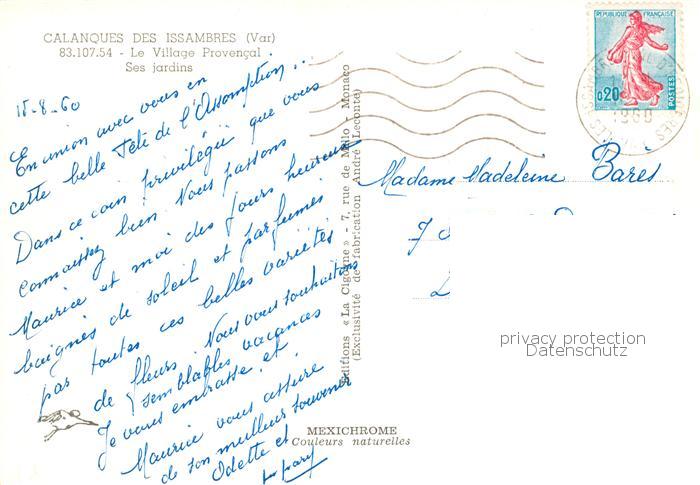 CALANQUES DES ISSAMBRES (Var)
83.107.54 - Le Village Provençal
Ses jardins
15-8-60
En union avec vous en
cette belle Fête de l'Assomption...
Dans ce coin privilégié que vous
connaissez bien. Nous passons
Maurice et moi des jours heureux
baignés de soleil et parfumés
par toutes ces belles variétés
de fleurs. Nous vous souhaitons
semblables vacances
Je vous embrasse et
Maurice vous assure
de son meilleur souvenir
Odette et
Editions « La Cigogne » - 7, rue de Millo - Monaco
(Exclusivité de fabrication André Leconte)
REPUBLIQUE FRANÇAISE
0,20
POSTES
1960
Madame Madeleine Barès
privacy protection
Datenschutz
MEXICHROME
Couleurs naturelles